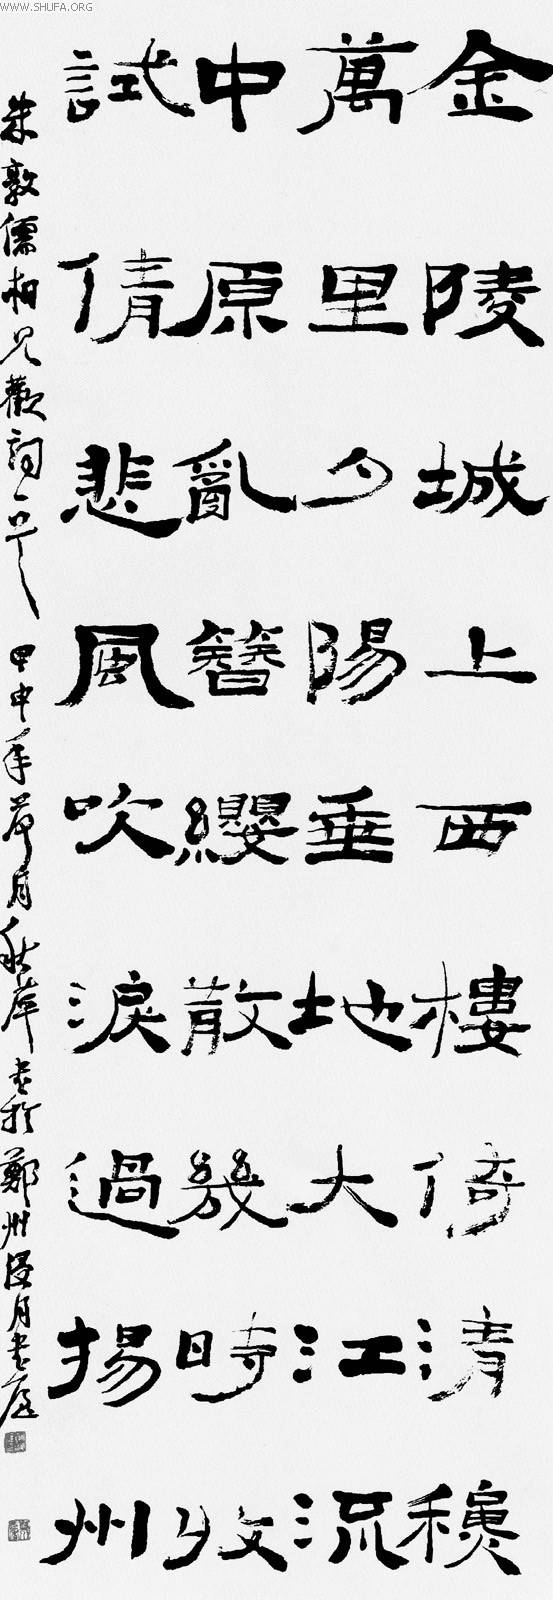 WWW.SHUFA.ORG
金陵城上西樓倚清穐
萬里夕陽垂地大江流
中原亂簪纓散幾時收
試倩悲風吹淚過揚州
朱敦儒相見歡詞一首 甲申年荷月秋萍書於鄭州浸月書